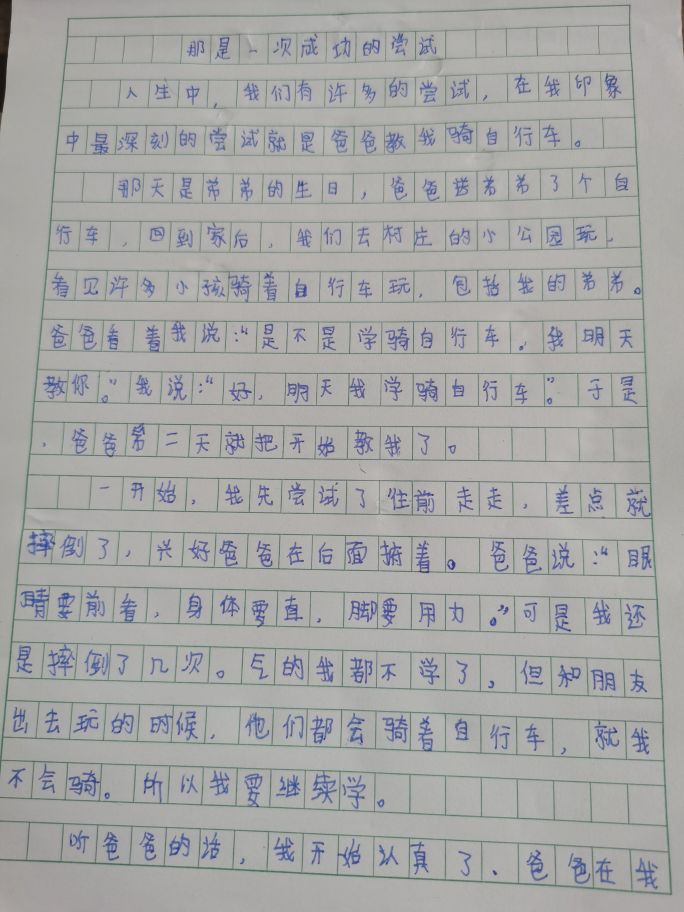 那是一次成功的尝试
人生中，我们有许多的尝试，在我印象
中最深刻的尝试就是爸爸教我骑自行车。
那天是弟弟的生日，爸爸送弟弟了个自
行车，回到家后，我们去村庄的小公园玩，
看见许多小孩骑着自行车玩，包括我的弟弟。
爸爸看着我说：“是不是学骑自行车，我明天
教你。”我说：“好，明天我学骑自行车。”于是
，爸爸第二天就把开始教我了。
一开始，我先尝试了往前走走，差点就
摔倒了，兴好爸爸在后面掎着。爸爸说：“眼
睛要前看，身体要直，脚要用力。”可是我还
是摔倒了几次。气的我都不学了，但和朋友
出去玩的时候，他们都会骑着自行车，就我
不会骑。所以我要继续学。
听爸爸的话，我开始认真了、爸爸在我